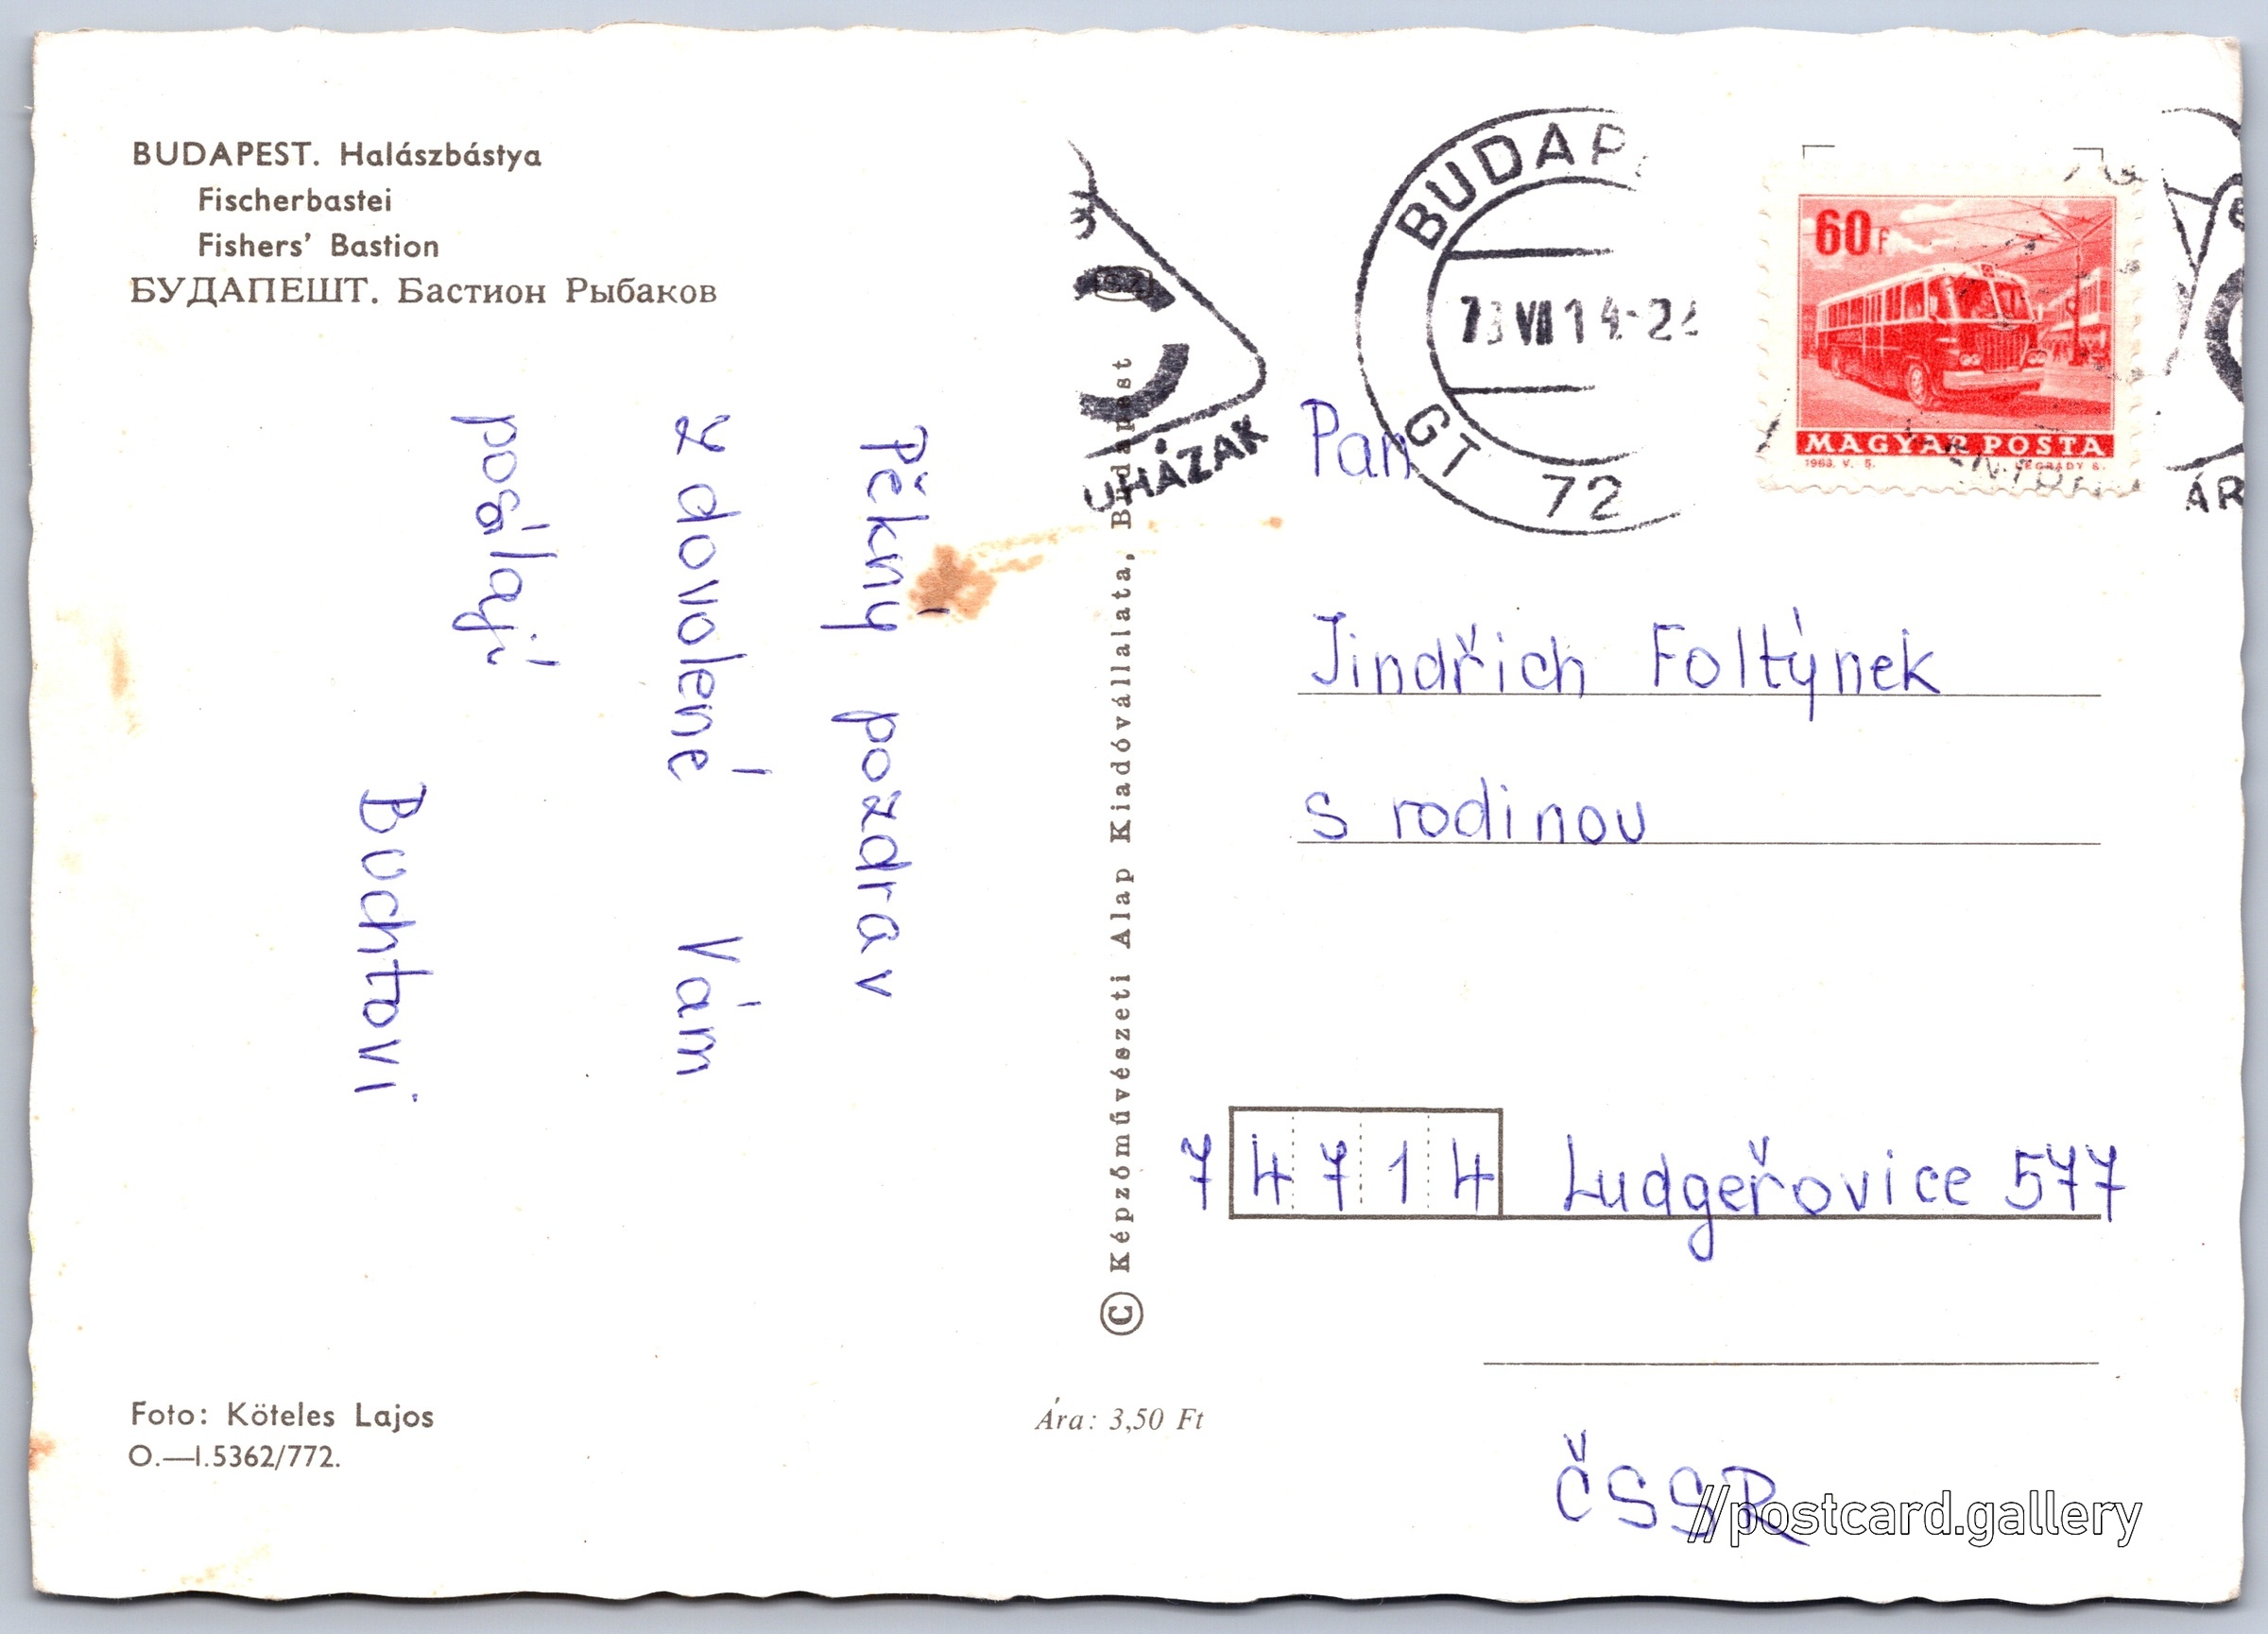 BUDAPEST. Halászbástya
Fischerbastei
Fishers' Bastion
БУДАПЕШТ. Бастион Рыбаков
Pěkný pozdrav
z dovolené Vám
posílají
Buchtovi
Foto: Köteles Lajos
O.—I.5362/772.
© Képzőművészeti Alap Kiadóvállalata, Budapest
Ára: 3,50 Ft
UHÁZAK
BUDAP
73 VII 14-2
GT 72
60 f
MAGYAR POSTA
1963. V. 5. LÉGRÁDY S.
ÁR
Pan
Jindřich Foltýnek
s rodinou
74714 Ludgeřovice 577
ČSSR
//postcard.gallery